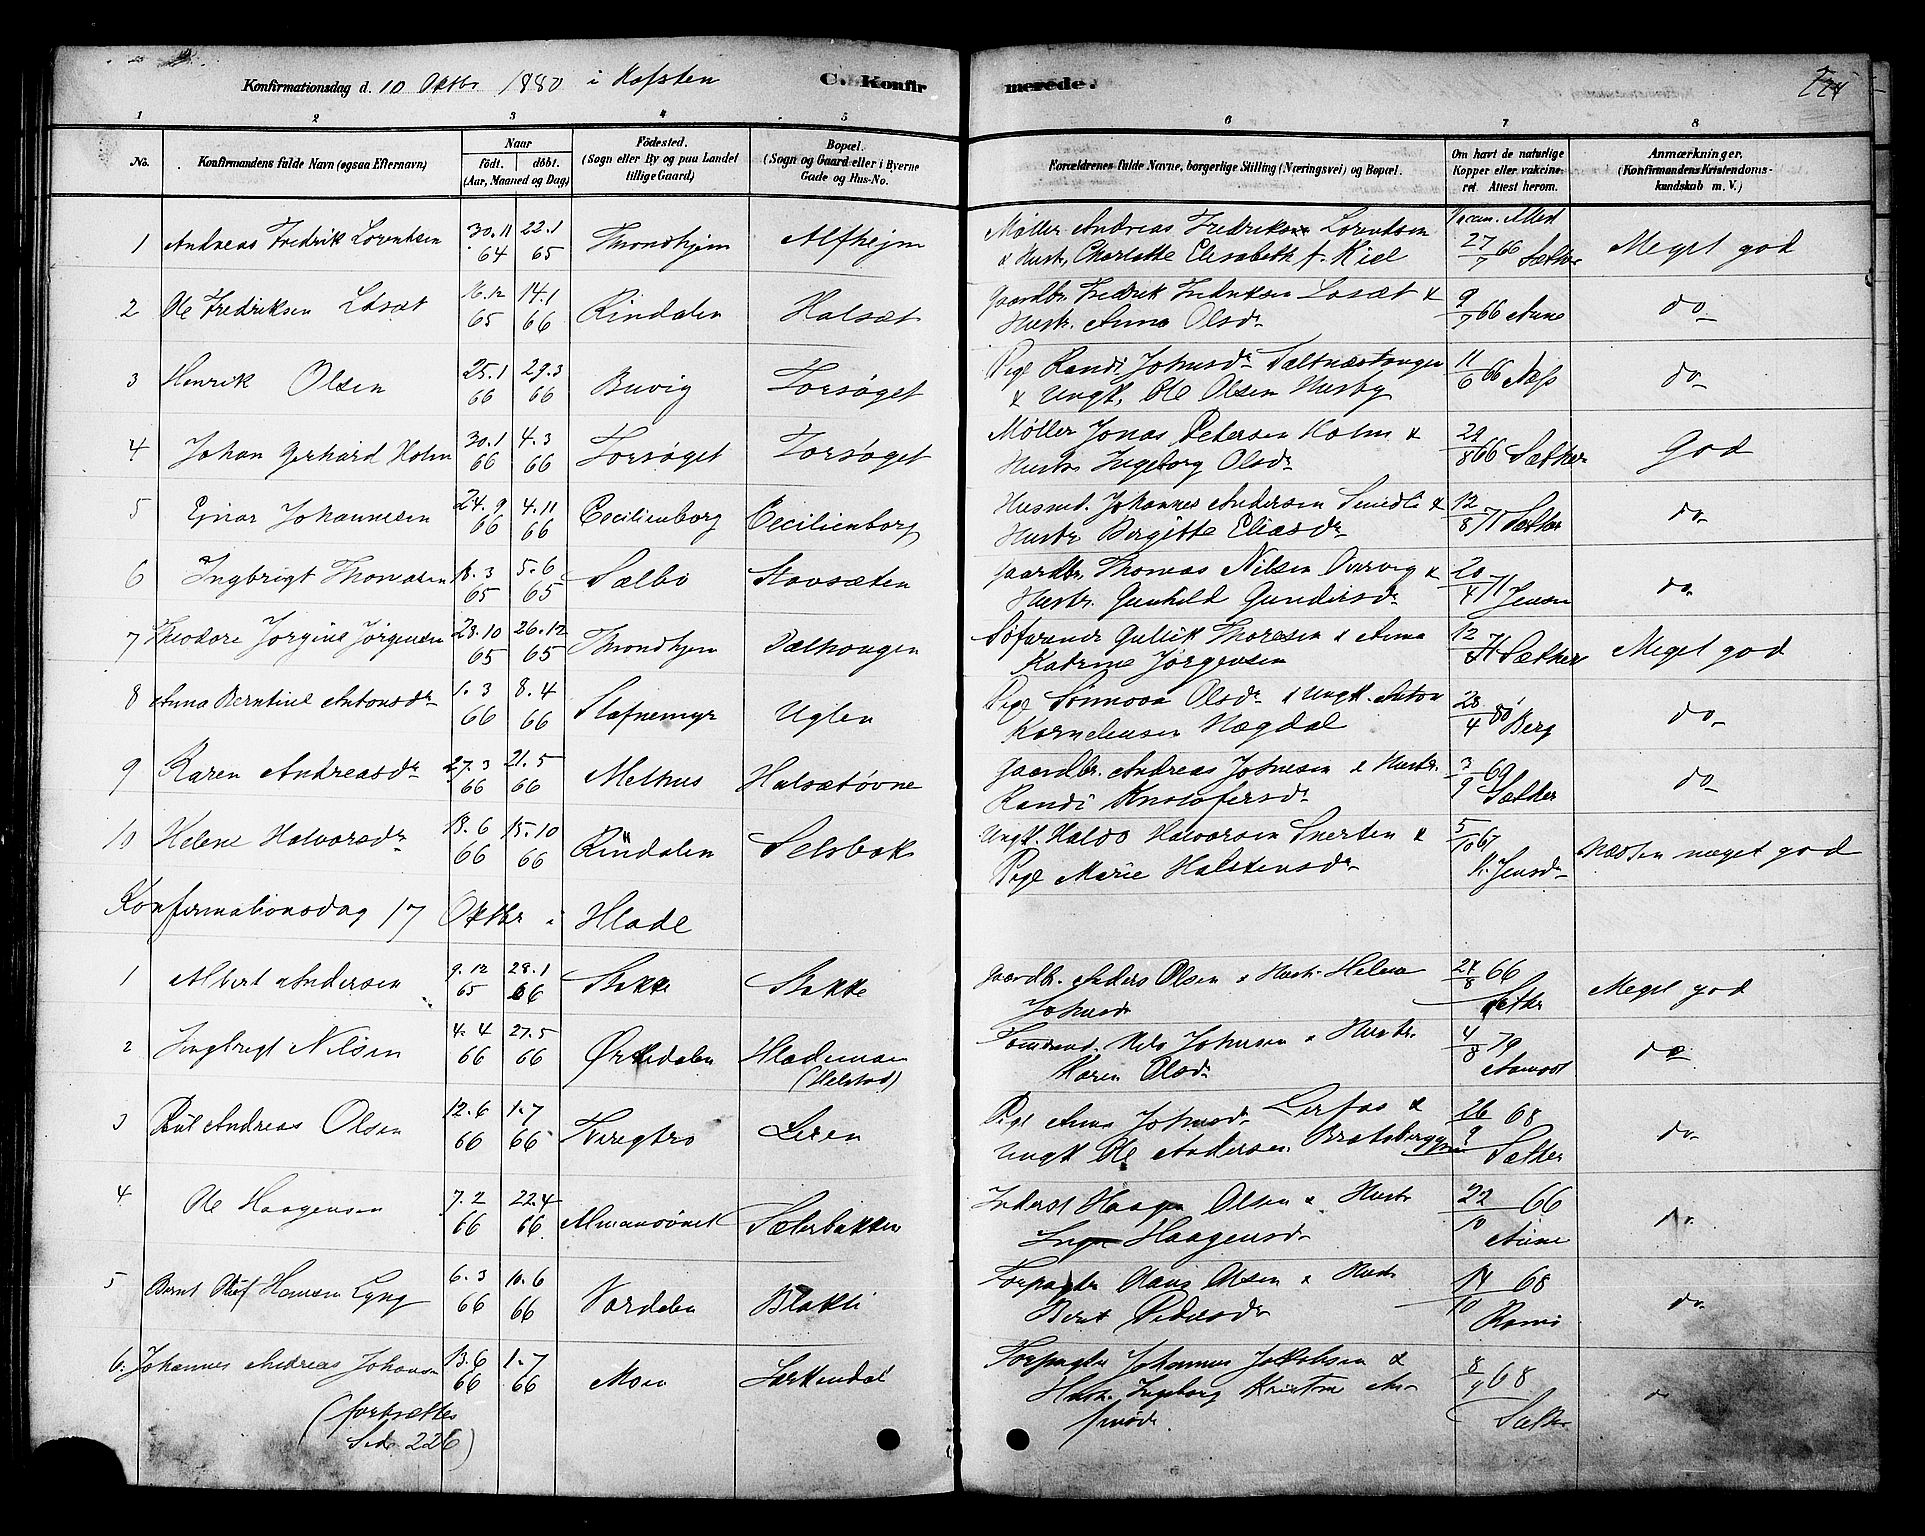 Konfirmationsdag d. 10 Oktbr 1880 i Hafsten C. Konfirmerede.
1 2 3 4 5 6 7 8
No. Konfirmandens fulde Navn (ogsaa Efternavn) Naar födt. döbt. (Aar, Maaned og Dag) Födested. (Sogn eller By og paa Landet tillige Gaard) Bopæl. (Sogn og Gaard eller i Byerne Gade og Hus-No. Forældrenes fulde Navne, borgerlige Stilling (Næringsvei) og Bopæl. Om havt de naturlige Kopper eller vakcineret. Attest herom. Anmærkninger. (Konfirmandens Kristendomskundskab m. V.)
1 Andreas Fredrik Lorentsen 30.11 64 22.1 65 Throndhjem Alfhejm Møller Andreas Fredriksen Lorentsen & Hustr. Charlotte Elisabeth f. Kiel Vaccin. Attest 27/7 66 Sæther Meget god
2 Ole Fredriksen Løsæt 16.12 65 14.1 66 Rindalen Halsæt Gaardbr. Fredrik Fredriksen Løsæt & Hustr. Anne Olsdr 9/7 66 Aune do
3 Henrik Olsen 25.1 66 29.3 66 Buvig Forsøget Pige Randi Johnsdr Saltnæstangen & Ungk. Ole Olsen Husby 11/6 66 Næss do
4 Johan Gerhard Holm 30.1 66 4.3 66 Forsøget Forsøget Møller Jonas Petersen Holm & Hustr Ingeborg Olsdr 29/8 66 Sæther God
5 Ejnar Johannesen 24.9 66 4.11 66 Cecilienborg Cecilienborg Husmd. Johannes Andersen Smedli & Hustr Birgitte Eliasdr 12/8 71 Sæther do
6 Ingbrigt Thomasen 18.3 65 5.6 65 Sælbo Stavsæten Gaardbr. Thomas Nilsen Overvig & Hustr. Gunhild Gundersdr 20/4 71 Jensen do
7 Theodore Jørgine Jørgensen 28.10 65 26.12 65 Throndhjem Dalhaugen Søfarende Gullik Thoresen & Anna Katrine Jørgensen 12/8 71 Sæther Meget god
8 Anna Berntine Antonsdr 1.3 66 8.4 66 Stafnemyr Uglen Pige Sønnova Olsdr & Ungk. Anton Korneliusen Nægdal 28/4 80 Berg do
9 Karen Andreasdr 27.3 66 21.5 66 Melhus Halsætøvne Gaardbr. Andreas Johnsen & Hustr. Randi Kristofersdr 3/9 69 Sæther do
10 Helene Halvorsdr 18.6 66 15.10 66 Rindalen Selsbak Ungk. Haldo Halvorsen Snerten & Pige Marie Halstensdr 5/10 67 K. Jensdr Næsten meget god
Konfirmationsdag 17 Oktbr i Hlade
1 Albert Andersen 9.12 65 28.1 66 Stokke Stokke Gaardbr. Anders Olsen & Hustr. Helena Johnsdr 24/8 66 Sæther Meget god
2 Ingbrigt Nilsen 4.4 66 27.5 66 Ørkedalen Hlademoen (Helstad) Tømmermd. Nils Johnsen & Hustr. Karen Olsdr 4/8 79 Aamodt do
3 Paul Andreas Olsen 12.6 66 1.7 66 Tveregtrø Leren Pige Anna Johnsdr Lerfos & Ungk Ole Andersen Bratsberggren 26/9 68 Sæther do
4 Ole Haagensen 7.2 66 22.4 66 Almansønet Sæterbakken Inderst Haagen Olsen & Hustr Haagensdr 22/10 66 Aune do
5 Bernt Olaf Hansen Lyng 6.3 66 10.6 66 Værdalen Blakli Forpagter Hans Olsen & Hustr Berit Pedersdr 14/10 68 do
6. Johannes Andreas Johansen 13.6 66 1.7 66 Moen Larkendal Forpagter Johannes Jakobsen & Hustr. Ingeborg Kristine 8/9 68 Sæther do
(fortsættes Side 226)